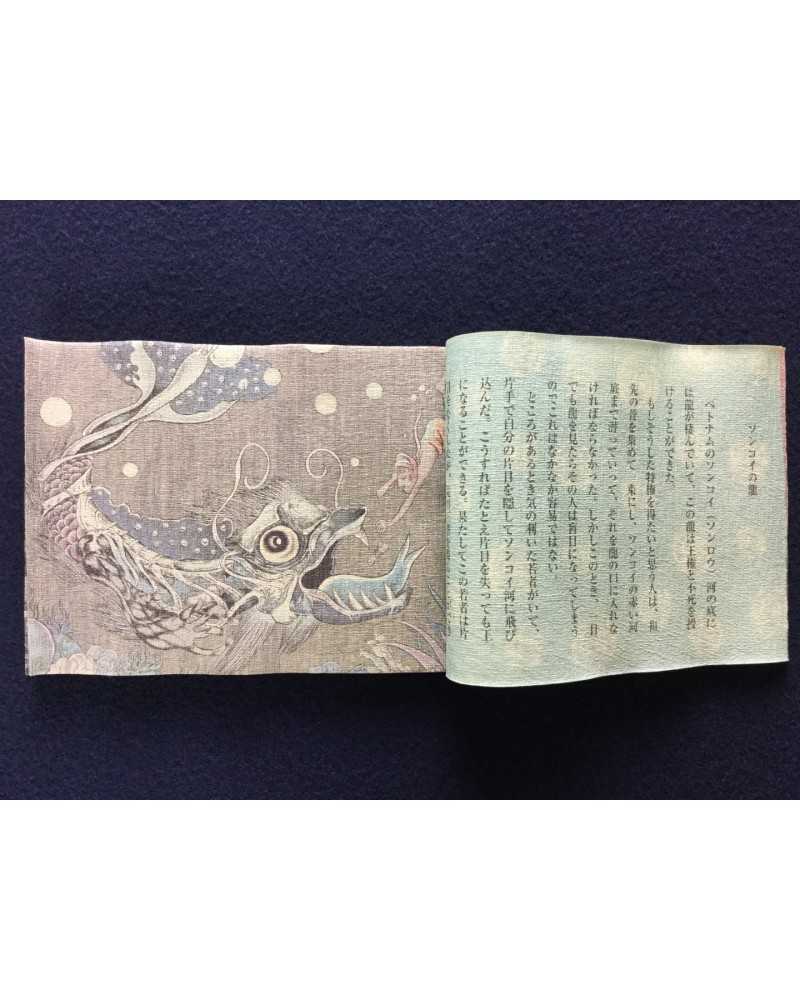 ソンコイの龍
ベトナムのソンコイ（ソンロウ）河の底に
は龍が棲んでいて、この龍は王権と不死を授
けることができた。
もしそうした特権を得たいと思う人は、祖
先の骨を集めて一束にし、ソンコイの赤い河
底まで潜っていって、それを龍の口に入れな
ければならなかった。しかしこのとき、一目
でも龍を見たらその人は盲目になってしまう
のでこれはなかなか容易ではない。
ところがあるとき気の利いた若者がいて、
片手で自分の片目を隠してソンコイ河に飛び
込んだ。こうすればたとえ片目を失っても王
になることができる。果たしてこの若者は片